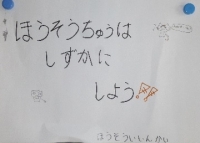 ほうそうちゅうは
しずかに
しよう
ほうそういいんかい